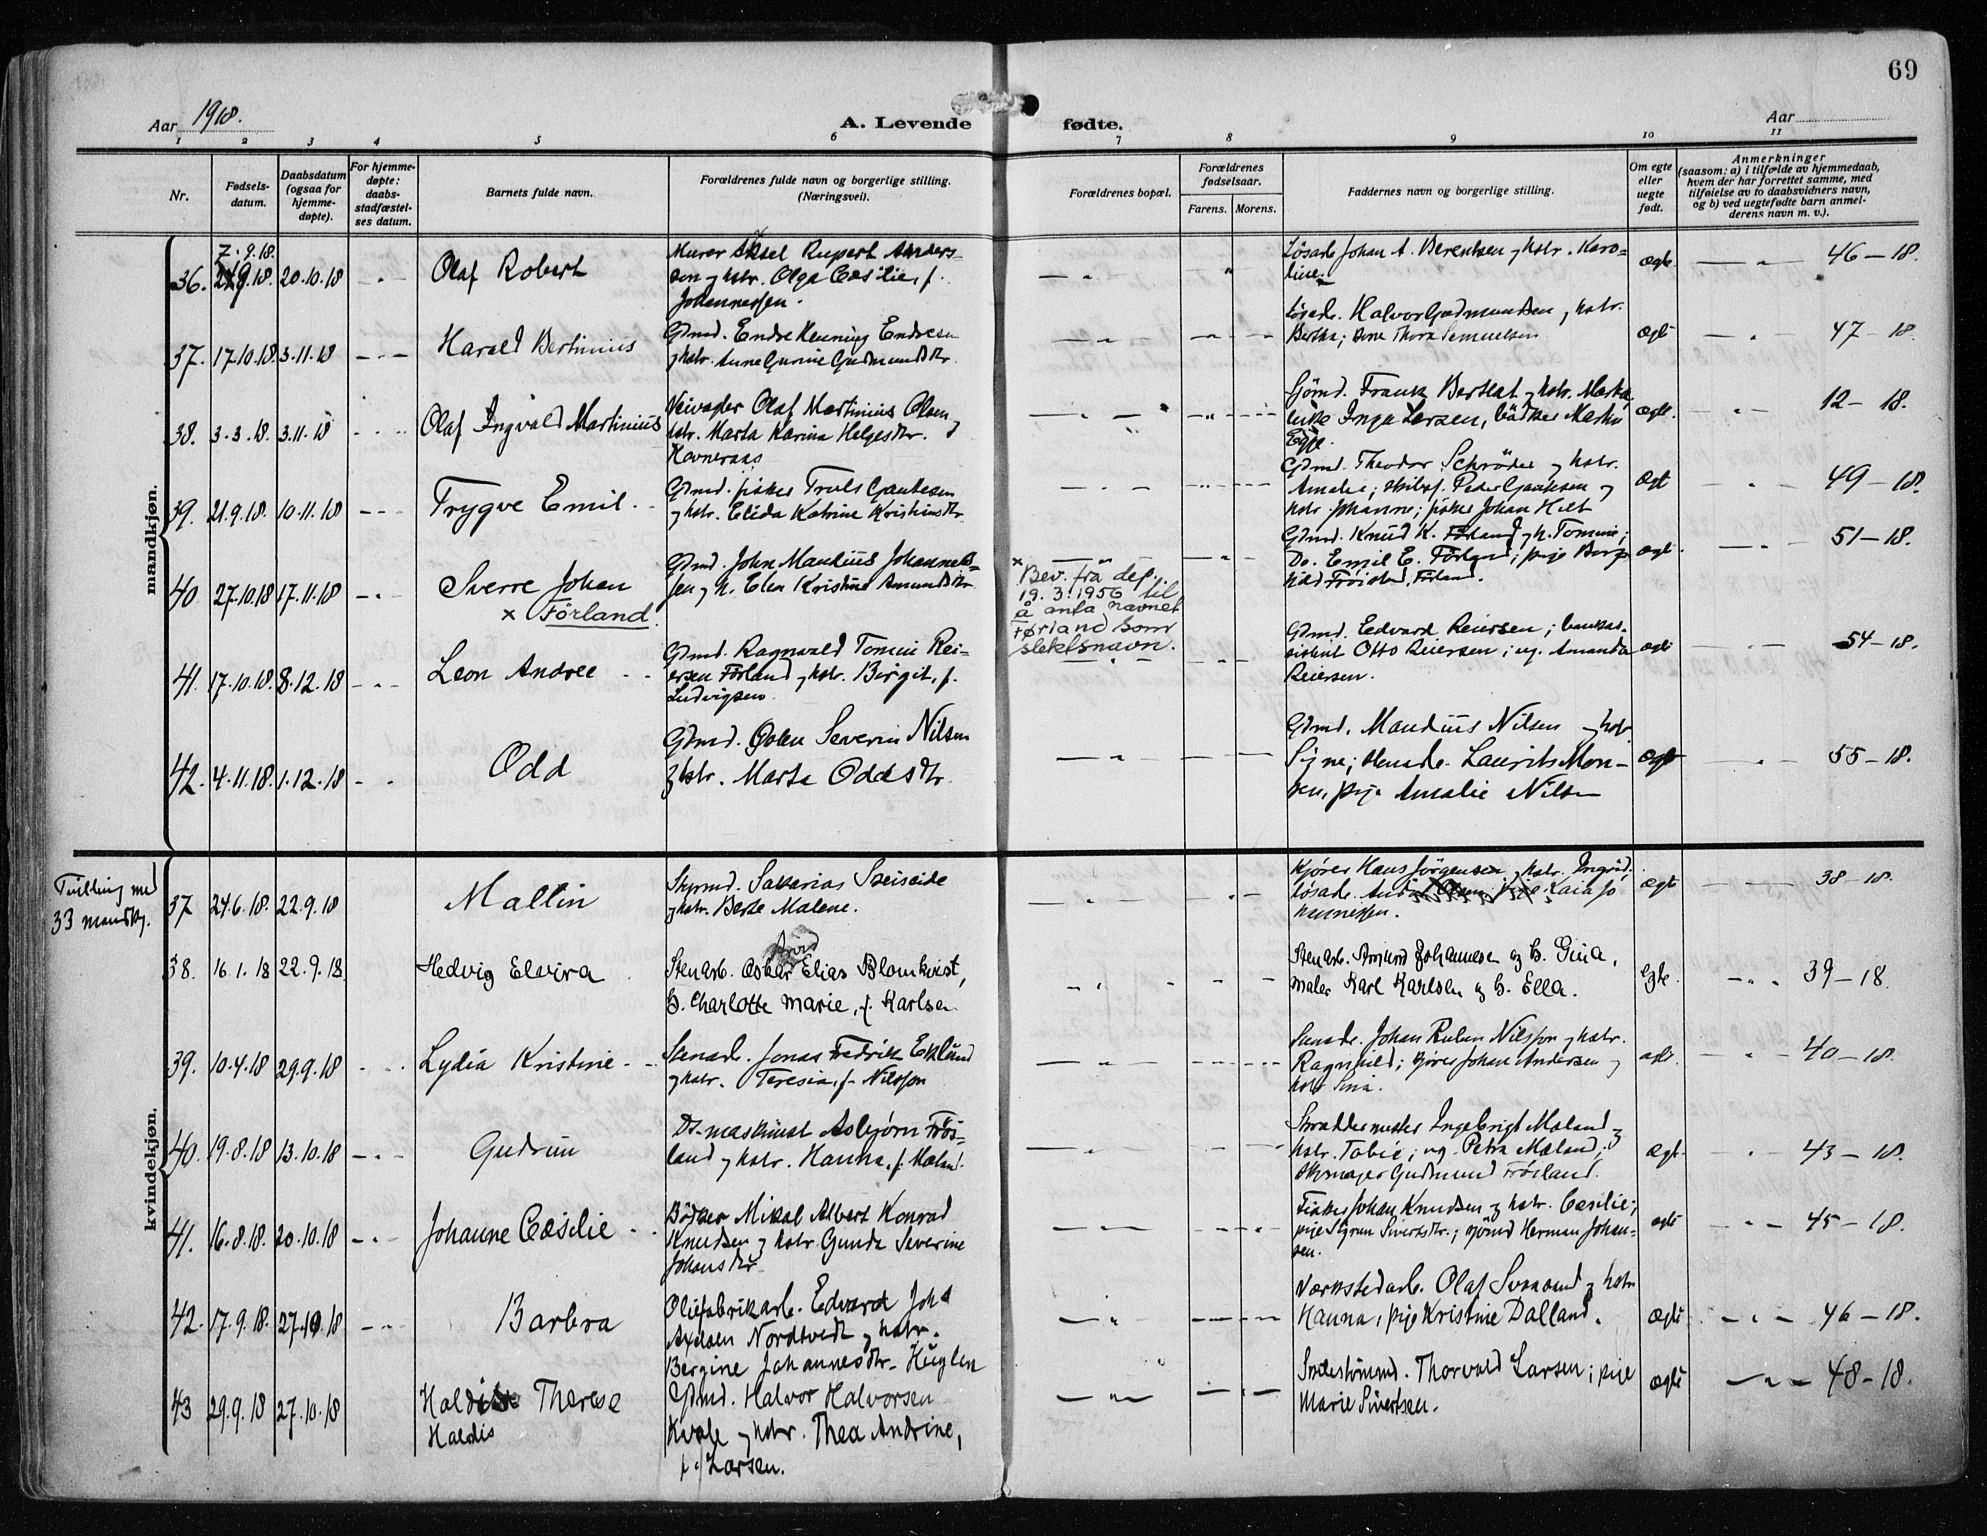 69
Aar 1918.
A. Levende fødte.
Aar
1 2 3 4 5 6 7 8 9 10 11
Nr.
Fødsels-
datum.
Daabsdatum
(ogsaa for
hjemme-
døpte).
For hjemme-
døpte:
daabs
stadfæstel-
ses datum.
Barnets fulde navn.
Forældrenes fulde navn og borgerlige stilling.
(Næringsvei).
Forældrenes bopæl.
Forældrenes
fødselsaar.
Farens. Morens.
Faddernes navn og borgerlige stilling.
Om egte
eller
uegte
født.
Anmerkninger
(saasom: a) i tilfælde av hjemmedaab,
hvem der har forrettet samme, med
tilføielse av to daabsvidners navn,
og b) ved uegtefødte barn anmel-
derens navn m. v.).
mandkjøn.
7.9.18.
36. 20.10.18 Olaf Robert
Murer Aksel Rupert Anders-
sen og hstr. Olga Cæsilie, f.
Johannessen.
Løsarb. Johan A. Berentsen og hstr. Karo-
line.
ægte 46-18.
37. 17.10.18 3.11.18 Harald Bertinius
Gdmd. Endre Henning Endresen
og hstr. Anne Gurine Gudmundsdtr.
Løsarb. Halvor Gudmundsen og hstr.
Bertha; Thora Samuelsen
ægte 47-18.
38. 3.3.18. 3.11.18 Olaf Ingvald Martinius
Veivogter Olaf Martinius Olsen og
hstr. Marta Karina Helgesdtr.
Hovneraas
Sjømd. Frank Berthat og hstr. Marta,
enke Inga Larsen, bødker Martin
Egje.
ægte. 12-18.
39. 21.9.18. 10.11.18 Trygve Emil
Gdmd. fisker Truls Gautesen
og hstr. Elida Katrine Kristinsdtr.
Gdmd. Theodor Schrøder og hstr.
Amalie; skibsf. Peder Gautesen og
hstr. Johanne; fisker Johan Hilt
ægt 49-18.
40. 27.10.18 17.11.18 Sverre Johan
x Förland.
Gdmd. John Mandius Johannes-
sen og h. Elen Kristine Amundsdtr.
x
Bev. fra dep.
19.3.1956 til
å anta navnet
Førland som
slektsnavn.
Gdmd. Knud K. Förland og h. Tomine;
Do. Emil E. Förland; pige Borg-
hild Frøistad, Förland.
ægt. 51-18.
41. 17.10.18. 8.12.18 Leon Andree
Gdmd. Ragnvald Tomine Rei-
ersen Förland og hstr. Birgit, f.
Ludvigsen
Gdmd. Edvard Reiersen; bankas-
sistent Otto Reiersen; ug. Amanda
Reiersen.
ægte 54-18.
42. 4.11.18. 1.12.18 Odd
Gdmd. Osten Severin Nilsen
og hstr. Marta Oddsdtr.
Gdmd. Mandius Nilsen og hstr.
Signe; stenarb. Laurits Mon-
sen, pige Amalie Nilsen
ægte 55-18.
kvindekjøn.
Tvilling med
33 mandkj.
37 24.6.18. 22.9.18 Mallin
Skymd. Sakarias Steiseide
og hstr. Berte Malene.
Kjører Hans Jørgensen, hstr. Ingrid.
Løsarb. Kaia Jo
hannessen.
ægt 38-18.
38. 16.1.18 22.9.18. Hedvig Elvira
Arvid
Stenarb. Oskar Elias Blomkvist,
h. Charlotte Marie, f. Karlsen
Stenarb. Amund Johannesen og h. Gina,
maler Karl Karlsen og h. Ella.
egte. 39-18.
39. 10.4.18 29.9.18 Lydia Kristine
Stenarb. Jonas Fredrik Eklund
og hstr. Teresia, f. Nilsson
Stenarb. Johan Ruben Nilsson og hstr.
Ragnhild; kjører Johan Andersen og
hstr. Sina.
ægte. 40-18.
40. 19.8.18 13.10.18 Gudrun
Ds-maskinist Asbjørn Frös-
land og hstr. Hanna, f. Mæland.
Skræddermester Ingebrigt Mæland og
hstr. Tobie; ug. Petra Mæland;
Skymager Gudmund Frösland.
ægt. 43-18.
41. 16.8.18. 20.10.18 Johanne Cæsilie
Bödker Mikal Albert Konrad
Knudsen og hstr. Gunda Severine
Johansdtr.
Fisker Johan Knudsen og hstr. Cæsilie;
pige Sigrun Sivertsdtr.; sjömd Herman Johan-
sen.
ægte 45-18.
42. 17.9.18. 27.10.18 Barbra
Oliefabrikarb. Edvard Joh
Axelsen Nordtvedt og hstr.
Bergine Johannesdtr. Huglen
Værkstedarb. Olaf Svanund og hstr.
Hanna, pige Kristine Dalland.
ægte 46-18.
43 29.9.18 27.10.18 Haldis Therese
Haldis
Gdmd. Halvor Halvorsen
Kvale og hstr. Thea Andrine,
f. Larsen.
Thorvald Larsen; pige
Marie Sivertsen.
ægte 48-18.